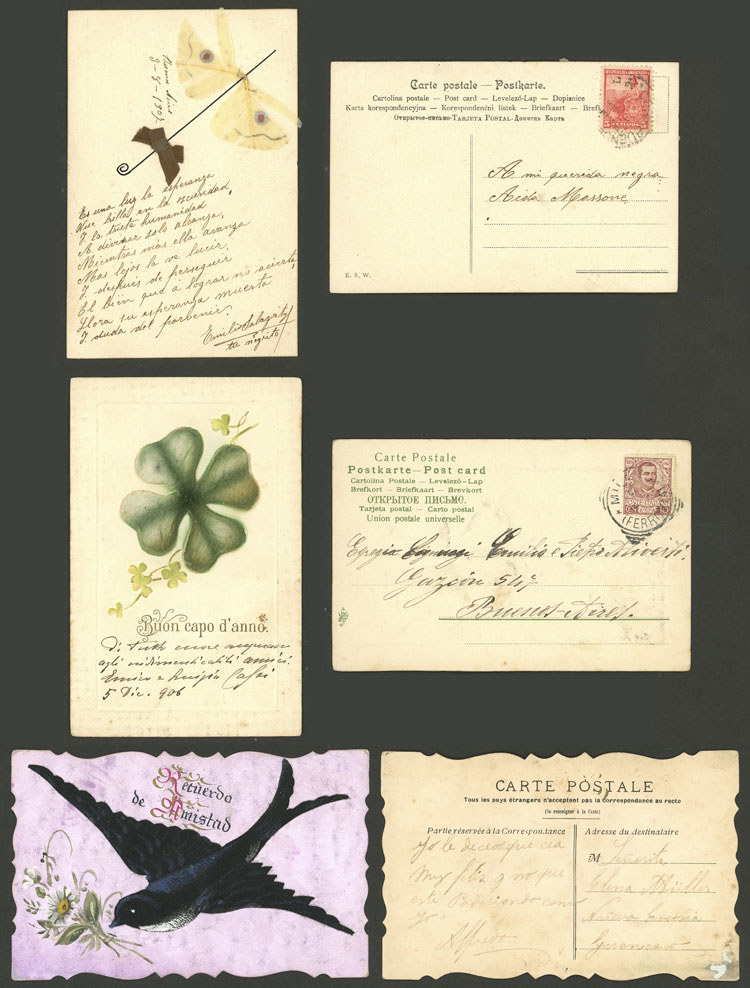 Buenos Aires
3-8-1907
Es una luz la esperanza
Que brilla en la oscuridad,
Y la triste humanidad
A divisar solo alcanza,
Mientras más ella avanza
Mas lejos la ve lucir,
Y despues de perseguir
El bien que a lograr no acierta,
Llora su esperanza muerta
Y duda del porvenir.
Emilio
tu negrito
Carte postale — Postkarte.
Cartolina postale — Post card — Levelező-Lap — Dopisnice
Karta korespondencyjna — Korespondenční listek — Briefkaart — Bref
Открытое-письмо-TARJETA POSTAL-Дописна Карта
REPUBLICA ARGENTINA
5
CENTAVOS
5
A mi querida negra
Aida Massone
E. S. W.
Buon capo d'anno.
Di tutto cuore auguran
agli indimenticabili amici.
Enrico e Luigia
5 Dic. 906
Carte Postale
Postkarte – Post card
Cartolina Postale – Levelező-Lap
Brefkort – Briefkaart – Brevkort
ОТКРЫТОЕ ПИСЬМО.
Tarjeta postal – Carto postal
Union postale universelle
POSTE ITALIANE
MIL
(FERR
Egregi Emilio e Pietro
Buenos-Aires.
Recuerdo
de Amistad
CARTE POSTALE
Tous les pays étrangers n'acceptent pas la correspondance au recto
(Se renseigner à la Poste)
Partie réservée à la Correspondance
Adresse du destinataire
Yo le deseo que sea
muy feliz y no que
este como
Yo
Alfredo
M Señorita
Elena Müller